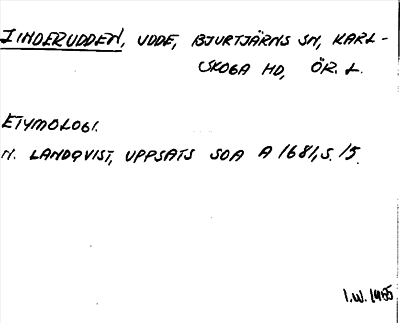 IINDERUDDEN, UDDE, BJURTJÄRNS SN, KARL-
SKOGA HD, ÖR. L.
ETYMOLOGI.
N. LANDQVIST, UPPSATS SOA A 1681, S. 15.
I.W. 1985